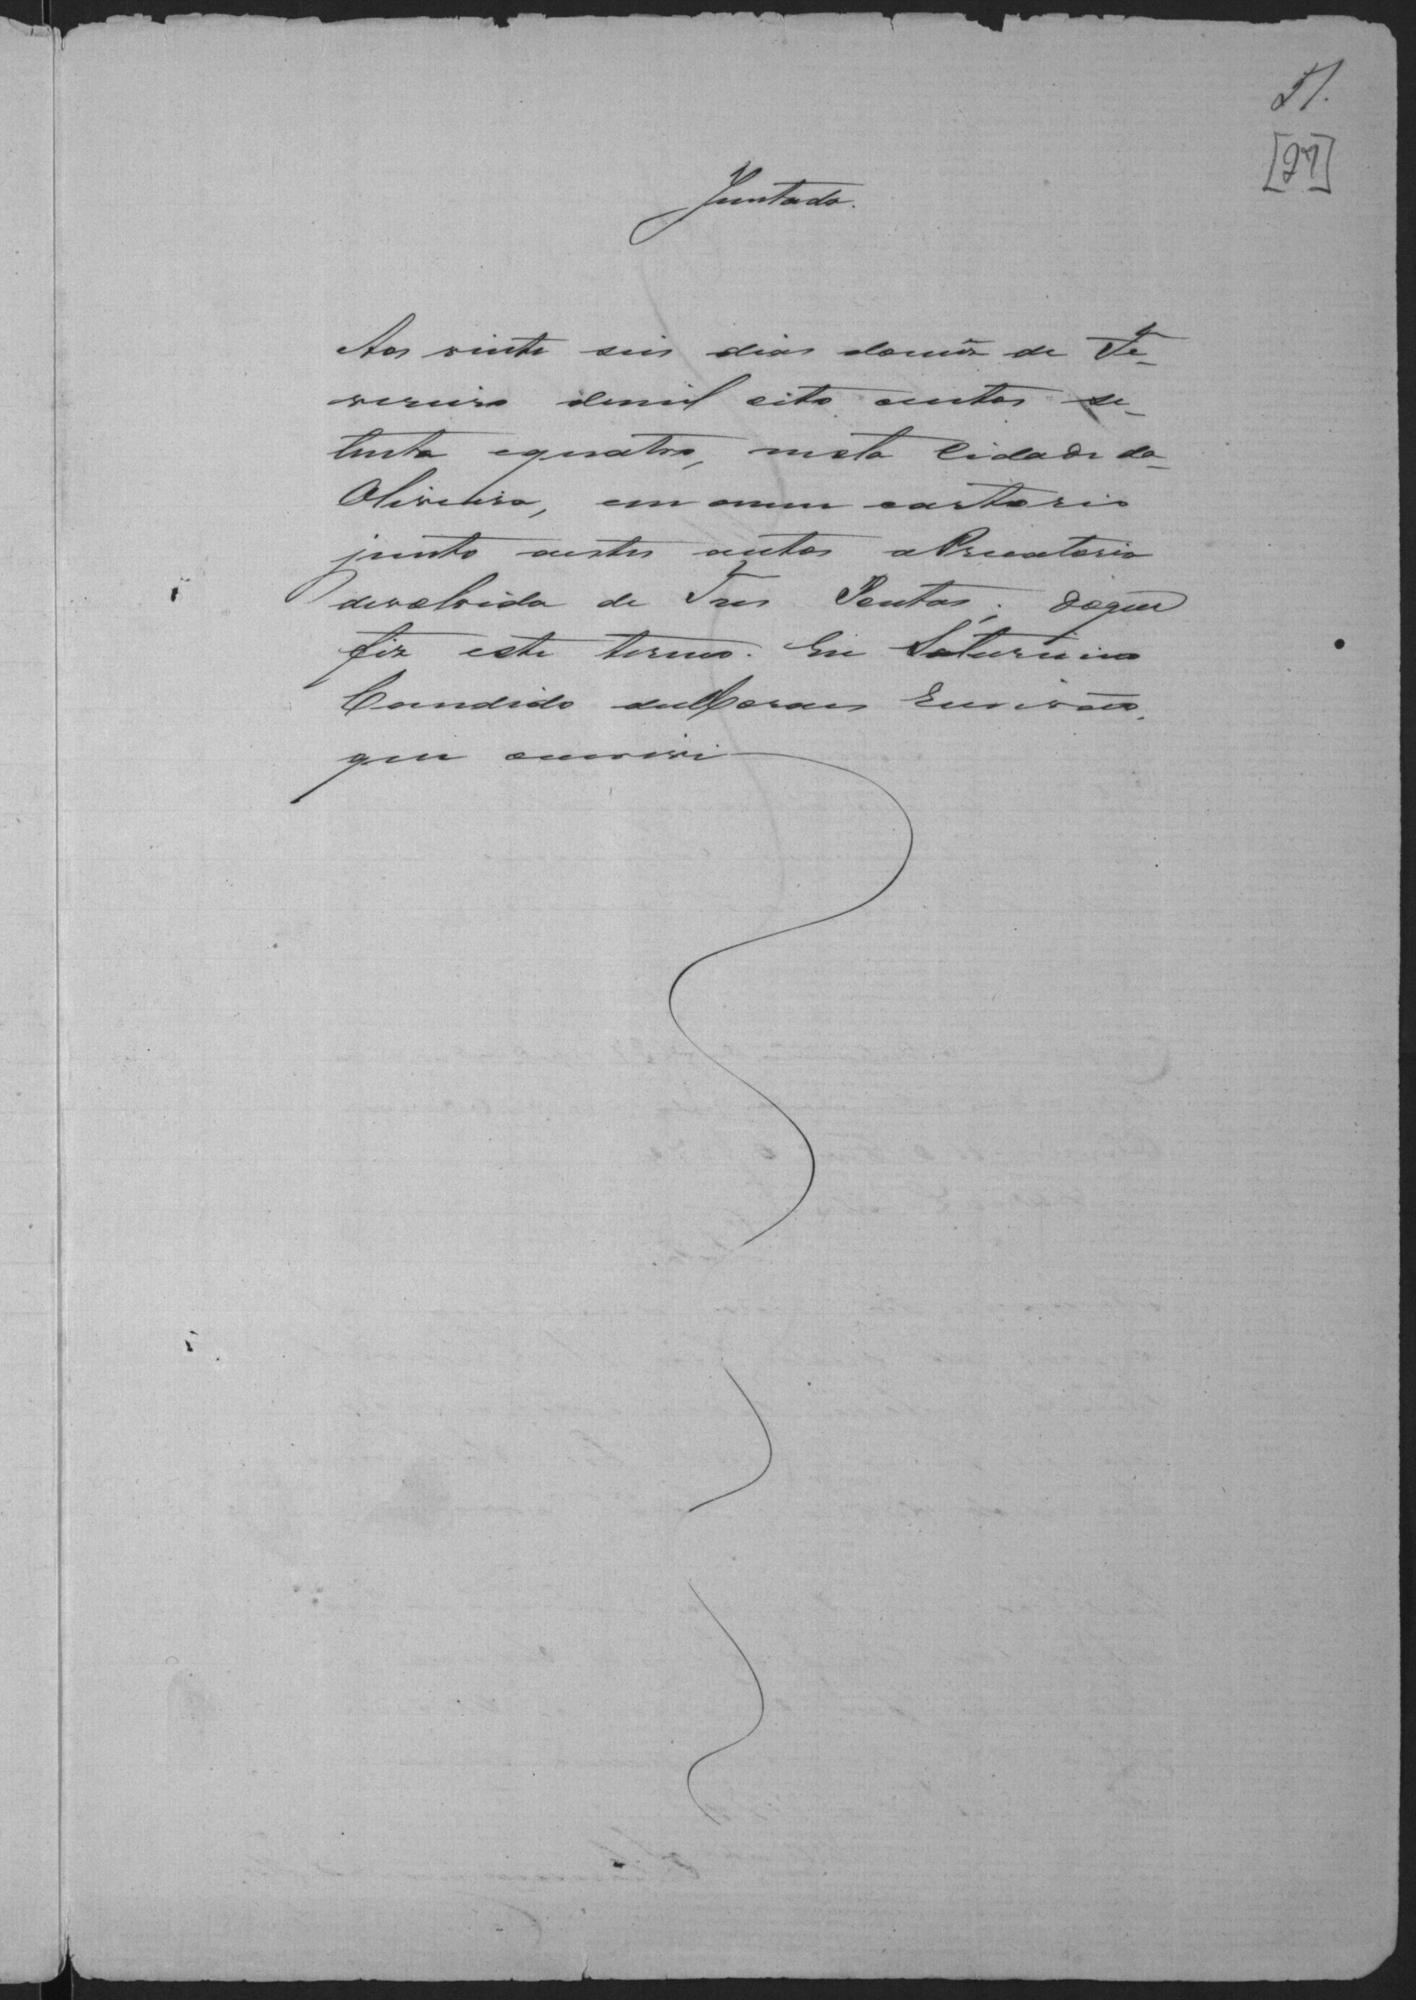 51.
[27]
Juntada.
Aos vinte seis dias domez de Fe-
vereiro demil oito centos se-
tenta equatro, nesta Cidade da-
Oliveira, em omeu cartorio
junto aestes autos aPrecatoria
devolvida de Tres Pontas; doque
fiz este termo. Eu Saturnino
Candido deMoraes Escrivão,
que escrevi